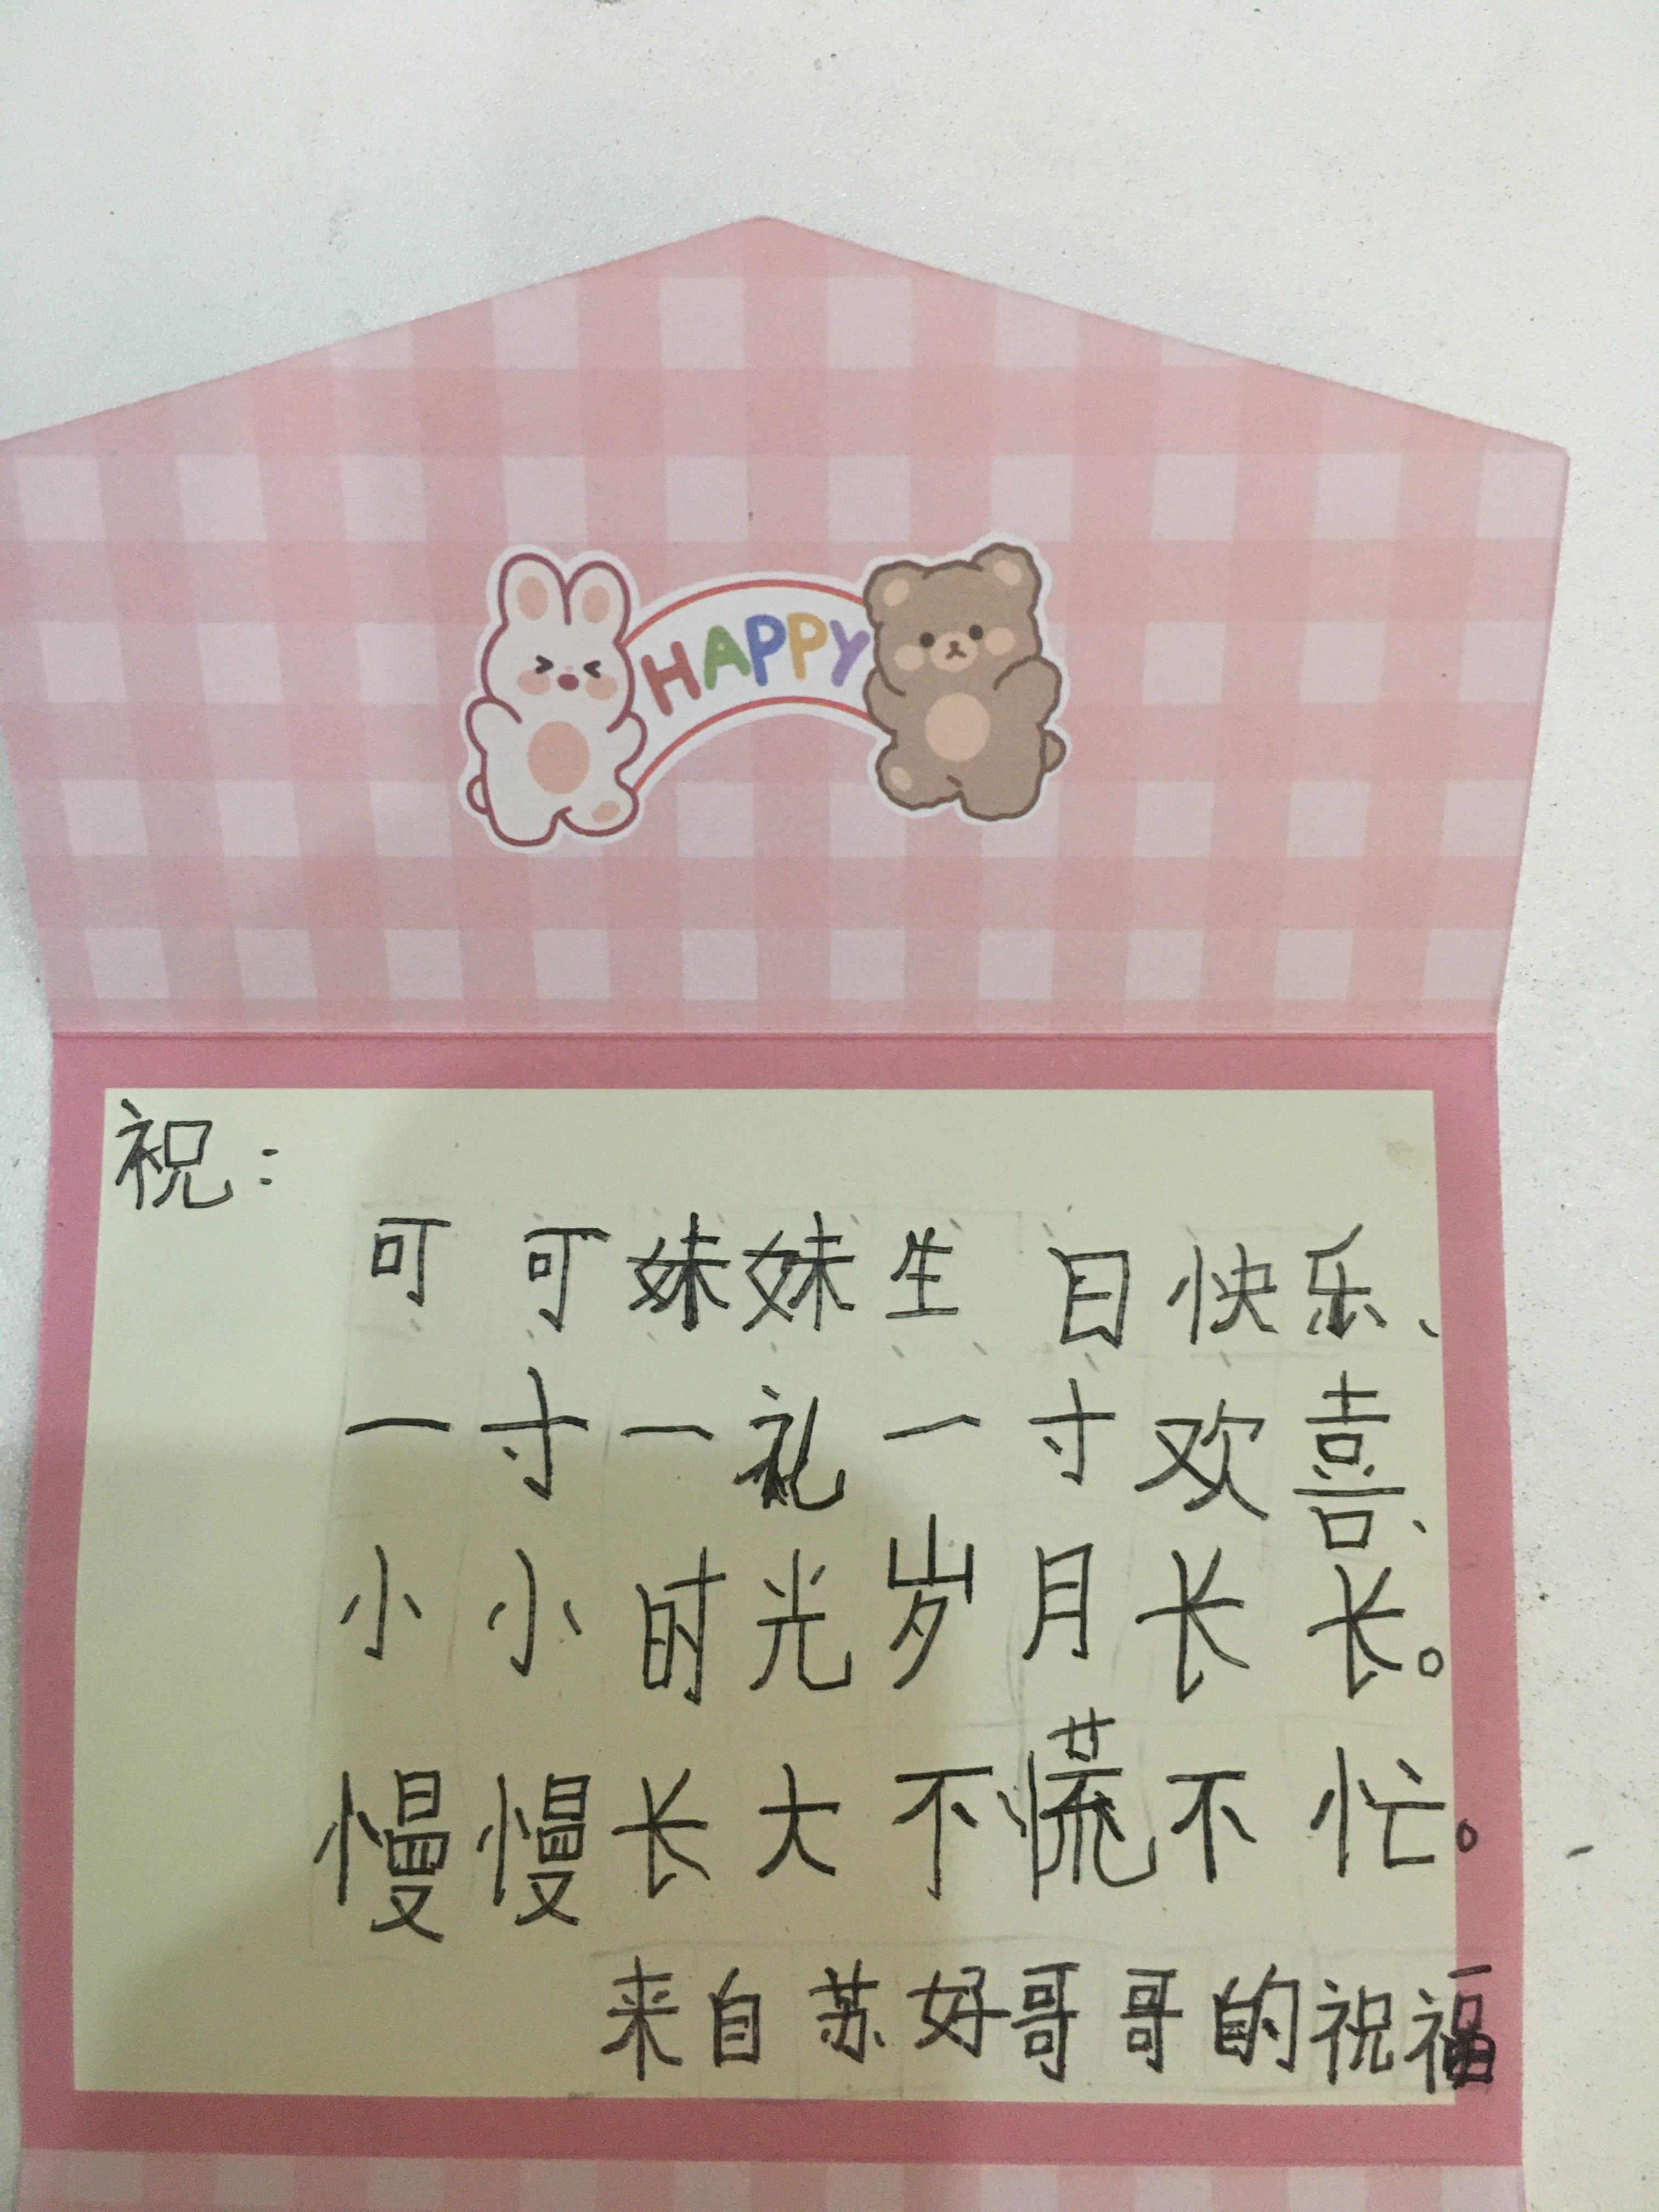 HAPPY
祝：
可可妹妹生日快乐、
一寸一礼一寸欢喜、
小小时光岁月长长。
慢慢长大不慌不忙。
来自苏好哥哥的祝福